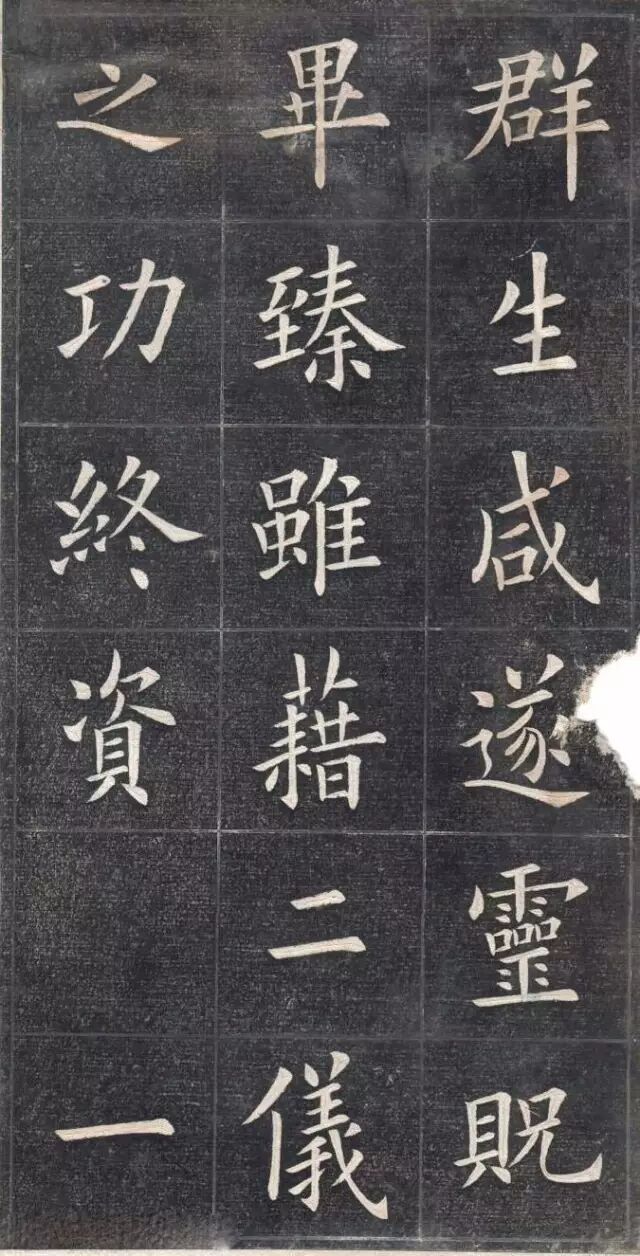 群生咸遂靈貺
畢臻雖藉二儀
之功終資 一